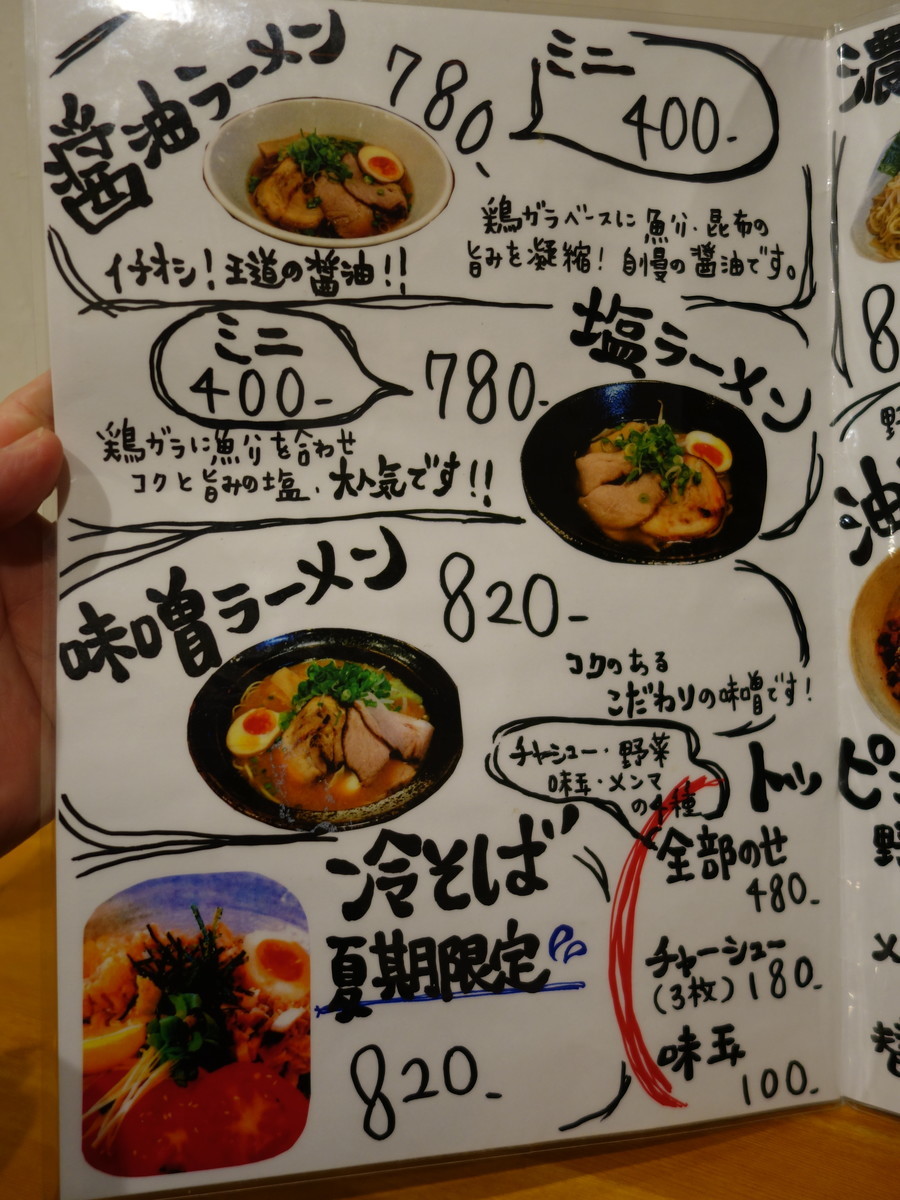 醤油ラーメン
780、
ミニ
400-
鶏ガラベースに魚介・昆布の
旨みを凝縮！自慢の醤油です。
イチオシ！王道の醤油！！
塩ラーメン
ミニ
400-
780-
鶏ガラに魚介を合わせ
コクと旨みの塩、大人気です！！
味噌ラーメン
820-
コクのある
こだわりの味噌です！
冷そば
夏期限定
820-
トッピン
チャーシュー・野菜
味玉・メンマ
の4種
全部のせ
480-
チャーシュー
(3枚) 180-
味玉
100-
濃
8
野
油
野
メ
替